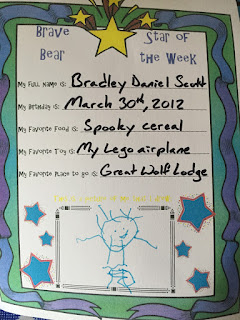 Brave Star of
Bear the Week
My Full Name is: Bradley Daniel Scott
My Birthday is: March 30th, 2012
My Favorite Food is: Spooky cereal
My Favorite Toy is: My Lego airplane
My Favorite Place to go is: Great Wolf Lodge